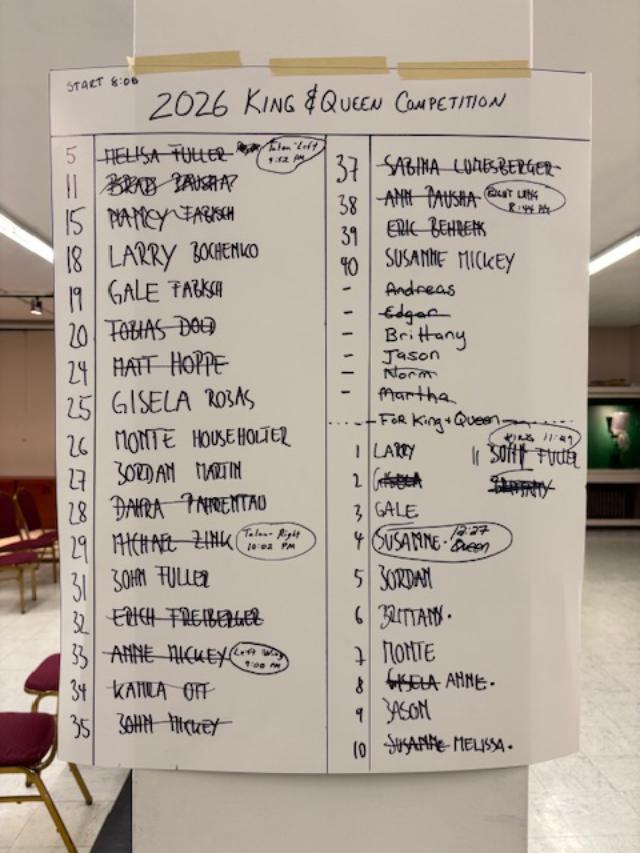 START 8:00
2026 KING & QUEEN COMPETITION
5 MELISA FULLER Talon Left 9:52 PM
11 BRAD PAUSHA
15 NANCY FABISCH
18 LARRY BOCHENKO
19 GALE FABISCH
20 TOBIAS DOLD
24 MATT HOPPE
25 GISELA ROJAS
26 MONTE HOUSEHOLTER
27 JORDAN MARTIN
28 DAHRA
29 MICHAEL ZINK Talon-Right 10:02 PM
31 JOHN FULLER
32 ERICH FREIBERGER
33 ANNE MICKEY Left Wing 9:00 PM
34 KAMILA OTT
35 JOHN MICKEY
37 SABINA LUNESBERGER
38 ANN PAUSHA RIGHT WING 8:44 PM
39 ERIC BEHRENS
40 SUSANNE MICKEY
- Andreas
- Edgar
- Brittany
- Jason
- Norm
- Martha
FOR King + Queen
1 LARRY
2 GISELA
3 GALE
4 SUSANNE. 12:27 Queen
5 JORDAN
6 BRITTANY.
7 MONTE
8 GISELA ANNE.
9 JASON
10 SUSANNE MELISSA.
KING 11:49
11 JOHN FULLER
BRITTANY